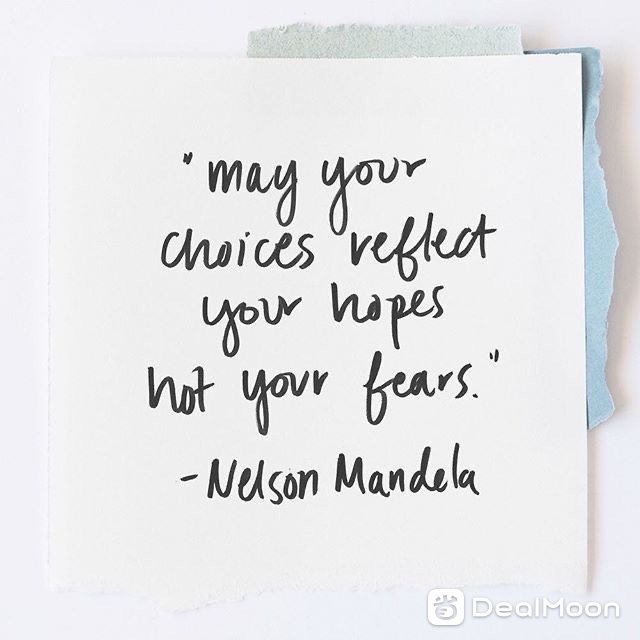 "may your
choices reflect
your hopes
not your fears."
- Nelson Mandela
DealMoon